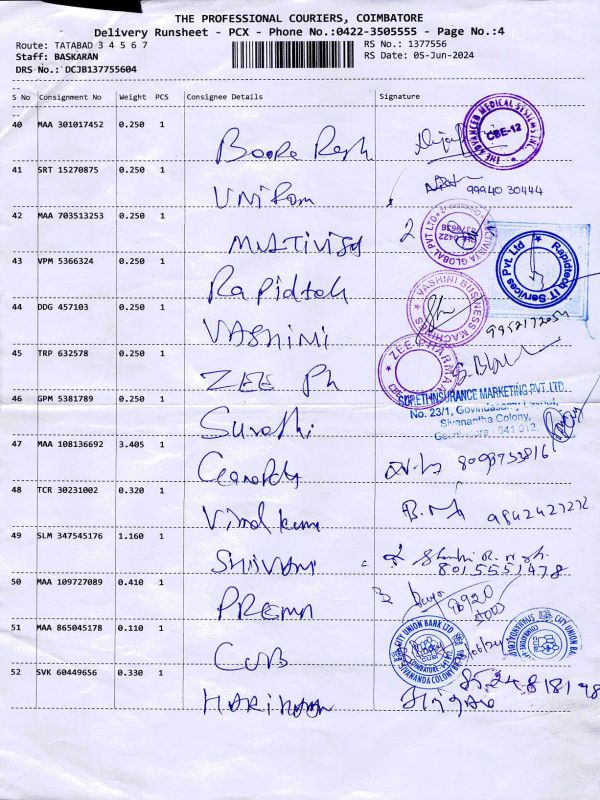 THE PROFESSIONAL COURIERS, COIMBATORE
Delivery Runsheet - PCX - Phone No.:0422-3505555 - Page No.:4
Route: TATABAD 3 4 5 6 7 RS No.: 1377556
Staff: BASKARAN RS Date: 05-Jun-2024
DRS No.: DCJB137755604
S No Consignment No Weight PCS Consignee Details Signature
40 MAA 301017452 0.250 1
THE ADVANCED MEDICAL SYSTEMS INC. CBE-12
41 SRT 15270875 0.250 1
UNIROM 99940 30444
42 MAA 703513253 0.250 1
MULTIVISTA GLOBAL PVT LTD
43 VPM 5366324 0.250 1
Rapidtech Rapidtech IT Services Pvt. Ltd
44 DDG 457103 0.250 1
VASHINI VASHINI BUSINESS MACHINES 9952172054
45 TRP 632578 0.250 1
ZEE Ph ZEE PHARMA
46 GPM 5381789 0.250 1
SURETHINSURANCE MARKETING PVT. LTD.
No. 23/1, Govindasamy
Sivanantha Colony,
Coimbatore - 641 012.
47 MAA 108136692 3.405 1
48 TCR 30231002 0.320 1
Vimal kumar 9842427272
49 SLM 347545176 1.160 1
SHIVANI 8015551478
50 MAA 109727089 0.410 1
PREMA 96920
51 MAA 865045178 0.110 1
CUB CITY UNION BANK LTD SIVANANDA COLONY CITY UNION BA
52 SVK 60449656 0.330 1